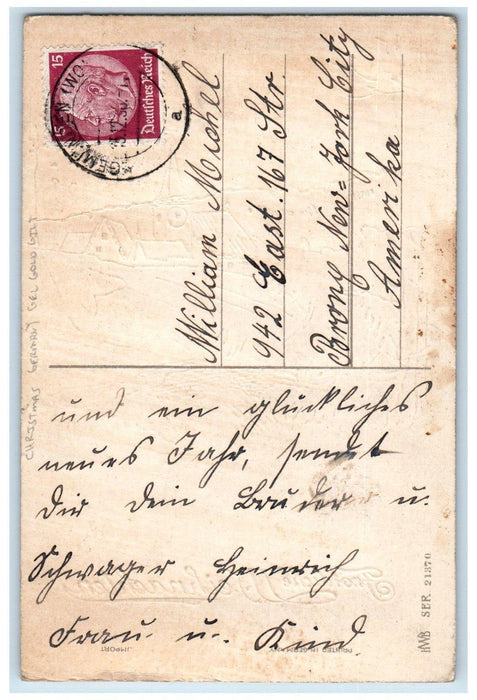 15
Deutsches Reich
15
a
William Michel
942 East. 167 Str.
Bronx New=York City
Amerika
CHRISTMAS GERMANY GEL GOLD GILT
und ein glückliches
neues Jahr, sendet
Dir Dein Bruder u.
Schwager Heinrich
Frau u. Kind.
HWB SER. 21370
PRINTED IN GERMANY
IMPORT